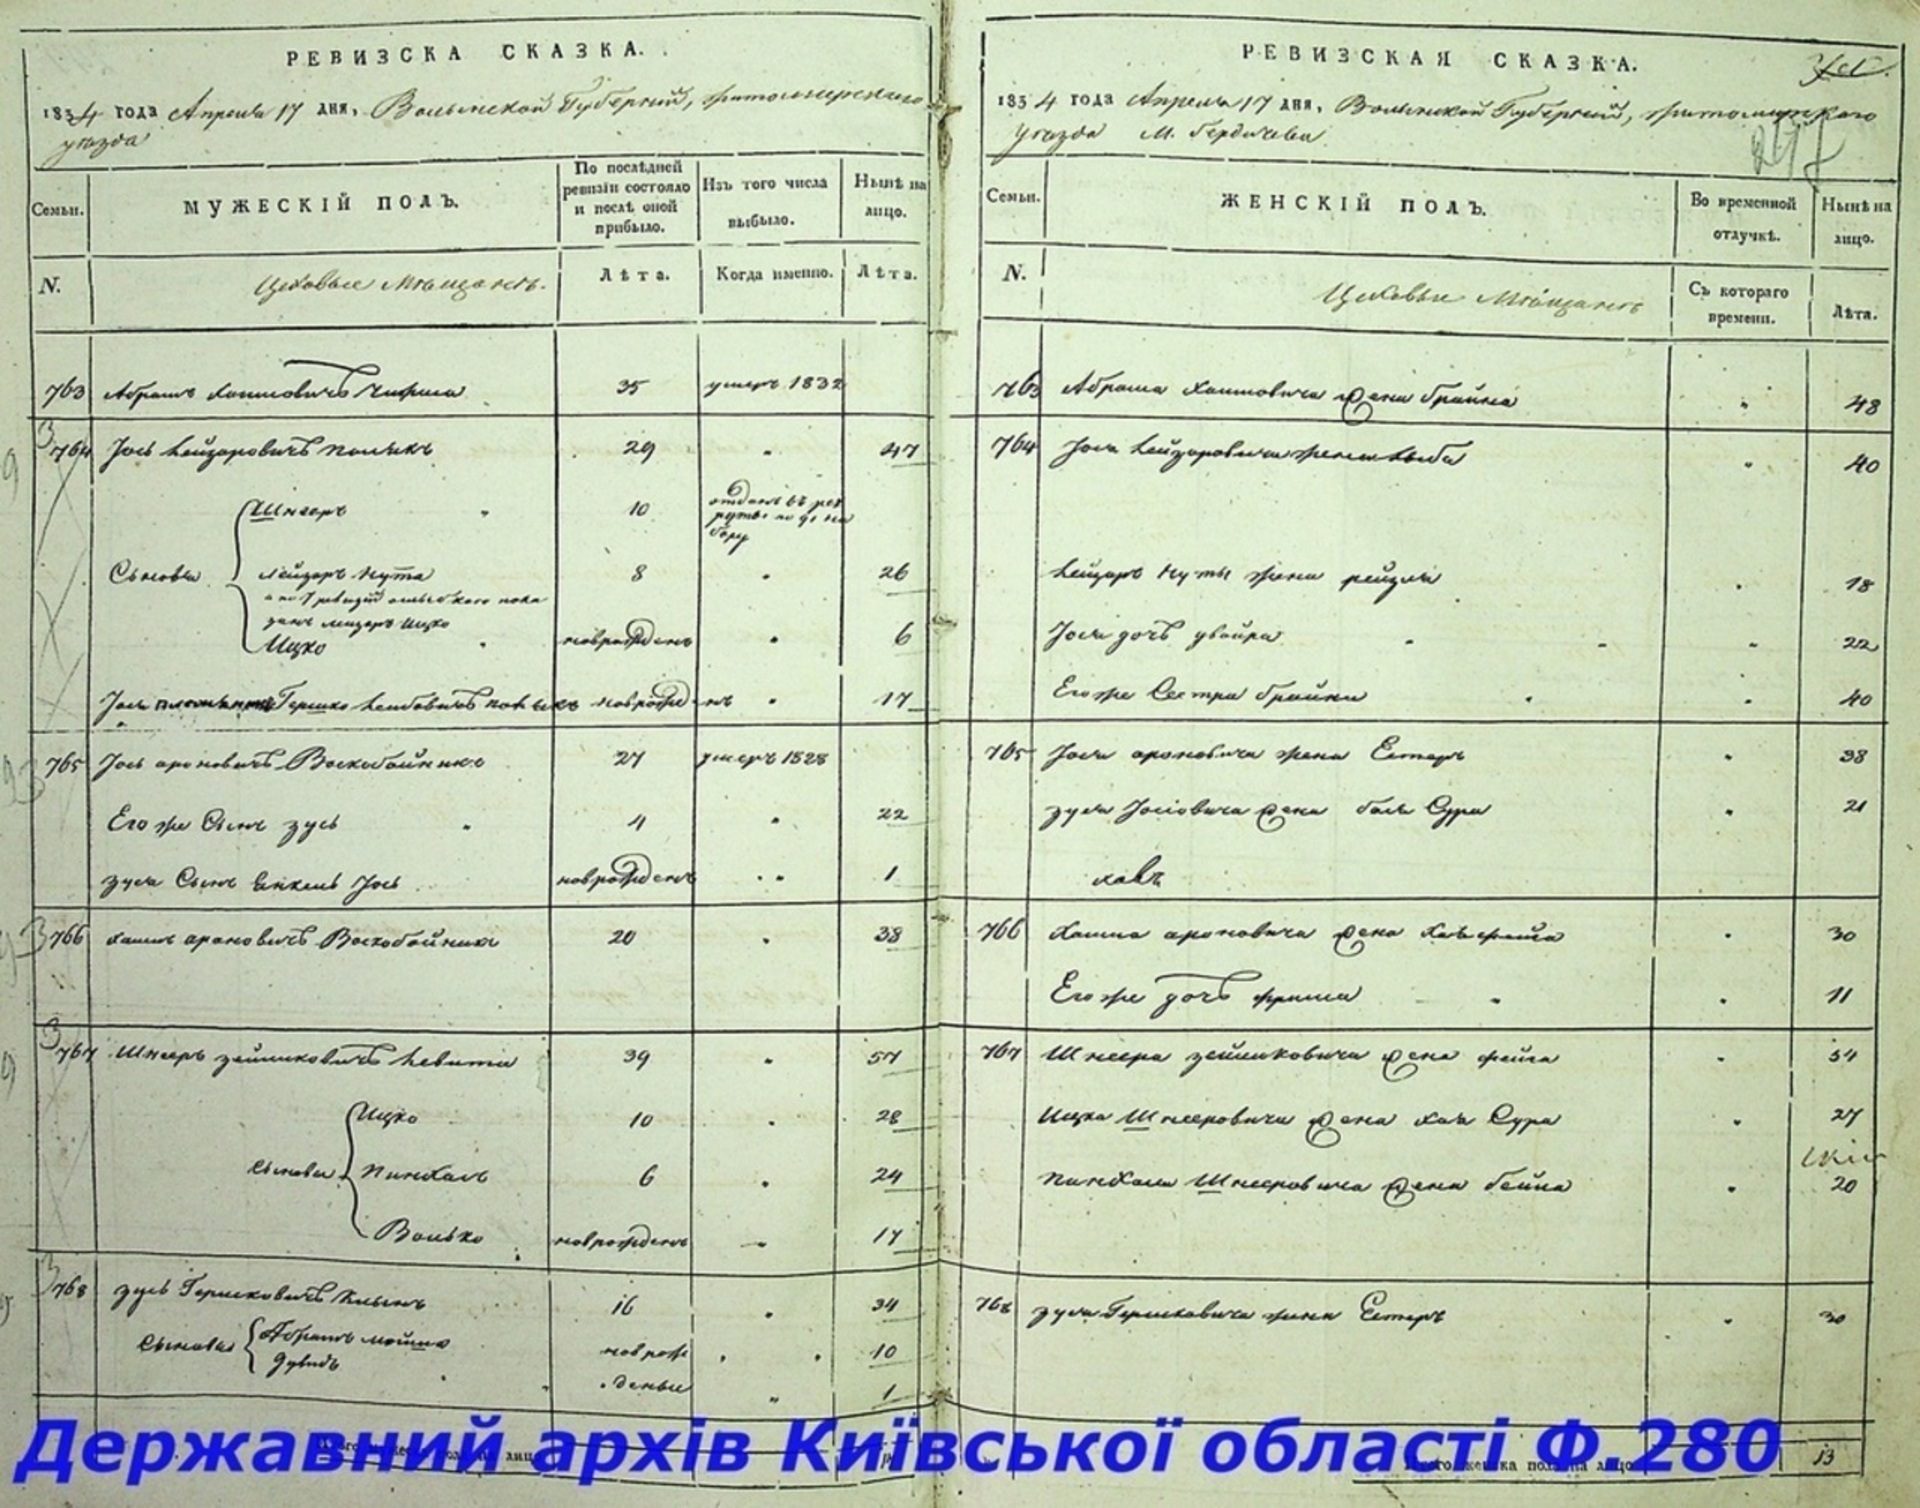 РЕВИЗСКА СКАЗКА.
1834 года Апреля 17 дня, Волынской Губернии, Житомирского
уезда
Семьи.
МУЖЕСКІЙ ПОЛЪ.
По послѣдней
ревизіи состояло
и послѣ оной
прибыло.
Изъ того числа
выбыло.
Нынѣ на
лицо.
N.
Цеховые Мещане.
Лѣта.
Когда именно.
Лѣта.
763 Абрамъ Хаимовичъ 35 умеръ 1832
764 Йось Лейзеровичъ 29 47
Шнееръ 10 отданъ въ рек
руты по 91 на
бору
Сыновья Лейзеръ Нута 8 26
Ицко новрожденъ 6
Гершко Лейбовичъ новрожденъ 17
765 Йось Ароновичъ Воскобойникъ 27 умеръ 1828
Его же Сынъ Зусь 4 22
Зуся Сынъ Янкель Йось новрожденъ 1
766 Хаимъ Ароновичъ Воскобойникъ 20 38
767 Шнееръ Зейликовичъ Левита 39 57
Ицко 10 28
Сыновья Пинхасъ 6 24
Волько новрожденъ 17
768 Зусь Гершковичъ 16 34
Сыновья Абрамъ Мошко новрож 10
Дувидъ деные 1
РЕВИЗСКАЯ СКАЗКА.
1834 года Апреля 17 дня, Волынской Губернии, Житомирского
уезда М. Бердичева
Семьи.
ЖЕНСКІЙ ПОЛЪ.
Во временной
отлучкѣ.
Нынѣ на
лицо.
N.
Цеховые Мещане
Съ котораго
времени.
Лѣта.
763 Абрама Хаимовича жена Брайна 48
764 Йося Лейзеровича жена Люба 40
Лейзеръ Нуты жена Рейзля 18
Йося дочь Двойра 22
Его же Сестра Брайна 40
765 Йося Ароновича жена Естеръ 38
Зуся Йосіовича жена Бася Сура 21
Хава
766 Хаима Ароновича жена Хая Фейга 30
Его же дочь Фрима 11
767 Шнеера Зейликовича жена Фейга 54
Ицка Шнееровича жена Хая Сура 27
Пинхаса Шнееровича жена Бейла 20
768 Зуся Гершковича жена Естеръ 30
13
Державний архів Київської області Ф.280